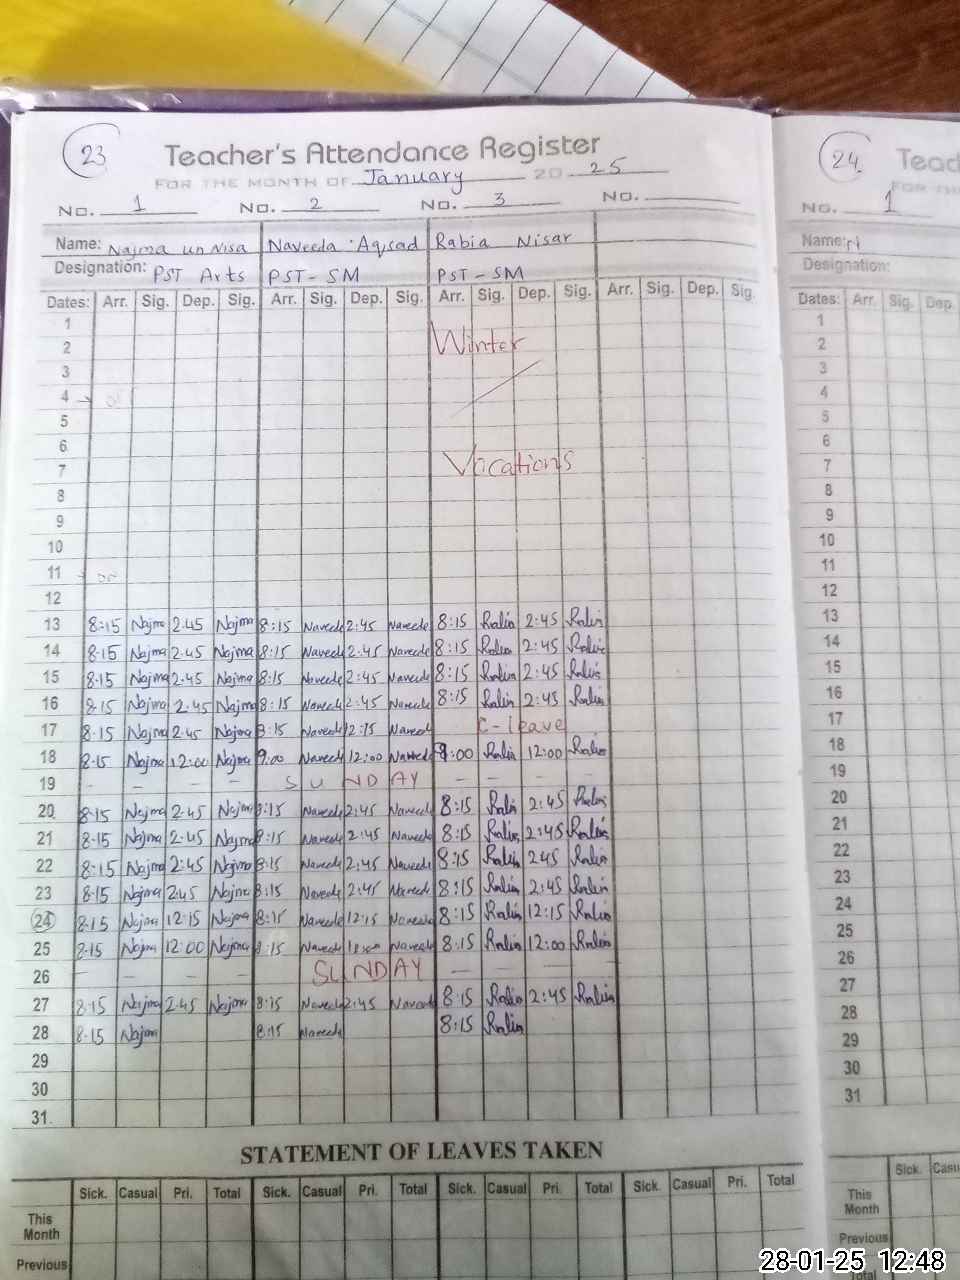 23
Teacher's Attendance Register
FOR THE MONTH OF January 20 25
No. 1 No. 2 No. 3 No.
Name: Najma un Nisa Naveeda Aqsad Rabia Nisar
Designation: PST Arts PST-SM PST-SM
Dates: Arr. Sig. Dep. Sig. Arr. Sig. Dep. Sig. Arr. Sig. Dep. Sig. Arr. Sig. Dep. Sig.
1
2 Winter
3
4
5
6
7 Vacations
8
9
10
11
12
13 8:15 Najma 2:45 Najma 8:15 Naveeda 2:45 Naveeda 8:15 Rabia 2:45 Rabia
14 8:15 Najma 2:45 Najma 8:15 Naveeda 2:45 Naveeda 8:15 Rabia 2:45 Rabia
15 8:15 Najma 2:45 Najma 8:15 Naveeda 2:45 Naveeda 8:15 Rabia 2:45 Rabia
16 8:15 Najma 2:45 Najma 8:15 Naveeda 2:45 Naveeda 8:15 Rabia 2:45 Rabia
17 8:15 Najma 2:45 Najma 8:15 Naveeda Naveeda C-leave
18 8:15 Najma 12:00 Najma 9:00 Naveeda 12:00 Naveeda 9:00 Rabia 12:00 Rabia
19 - - - - SUNDAY - - - -
20 8:15 Najma 2:45 Najma 8:15 Naveeda 2:45 Naveeda 8:15 Rabia 2:45 Rabia
21 8:15 Najma 2:45 Najma 8:15 Naveeda 2:45 Naveeda 8:15 Rabia 2:45 Rabia
22 8:15 Najma 2:45 Najma 8:15 Naveeda 2:45 Naveeda 8:15 Rabia 2:45 Rabia
23 8:15 Najma 2:45 Najma 8:15 Naveeda 2:45 Naveeda 8:15 Rabia 2:45 Rabia
24 8:15 Najma 12:15 Najma 8:15 Naveeda 12:15 Naveeda 8:15 Rabia 12:15 Rabia
25 8:15 Najma 12:00 Najma 8:15 Naveeda Naveeda 8:15 Rabia 12:00 Rabia
26 - - - - SUNDAY - - - -
27 8:15 Najma 2:45 Najma 8:15 Naveeda 2:45 Naveeda 8:15 Rabia 2:45 Rabia
28 8:15 Najma 8:15 Naveeda 8:15 Rabia
29
30
31
STATEMENT OF LEAVES TAKEN
Sick. Casual Pri. Total Sick. Casual Pri. Total Sick. Casual Pri. Total Sick. Casual Pri. Total
This
Month
Previous
24
Teac
FOR TH
No. 1
Name:
Designation:
Dates: Arr. Sig. Dep.
1
2
3
4
5
6
7
8
9
10
11
12
13
14
15
16
17
18
19
20
21
22
23
24
25
26
27
28
29
30
31
Sick. Casu
This
Month
Previous
Total
28-01-25 12:48